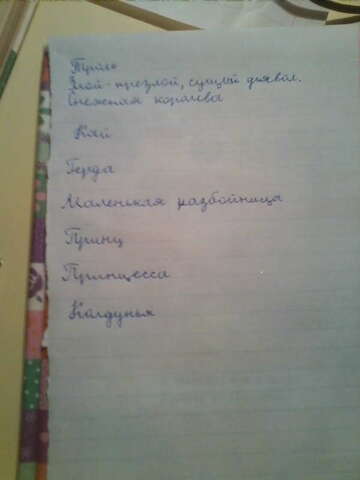 Тролль
Злой-презлой, сущий дьявол.
Снежная королева
Кай
Герда
Маленькая разбойница
Принц
Принцесса
Колдунья